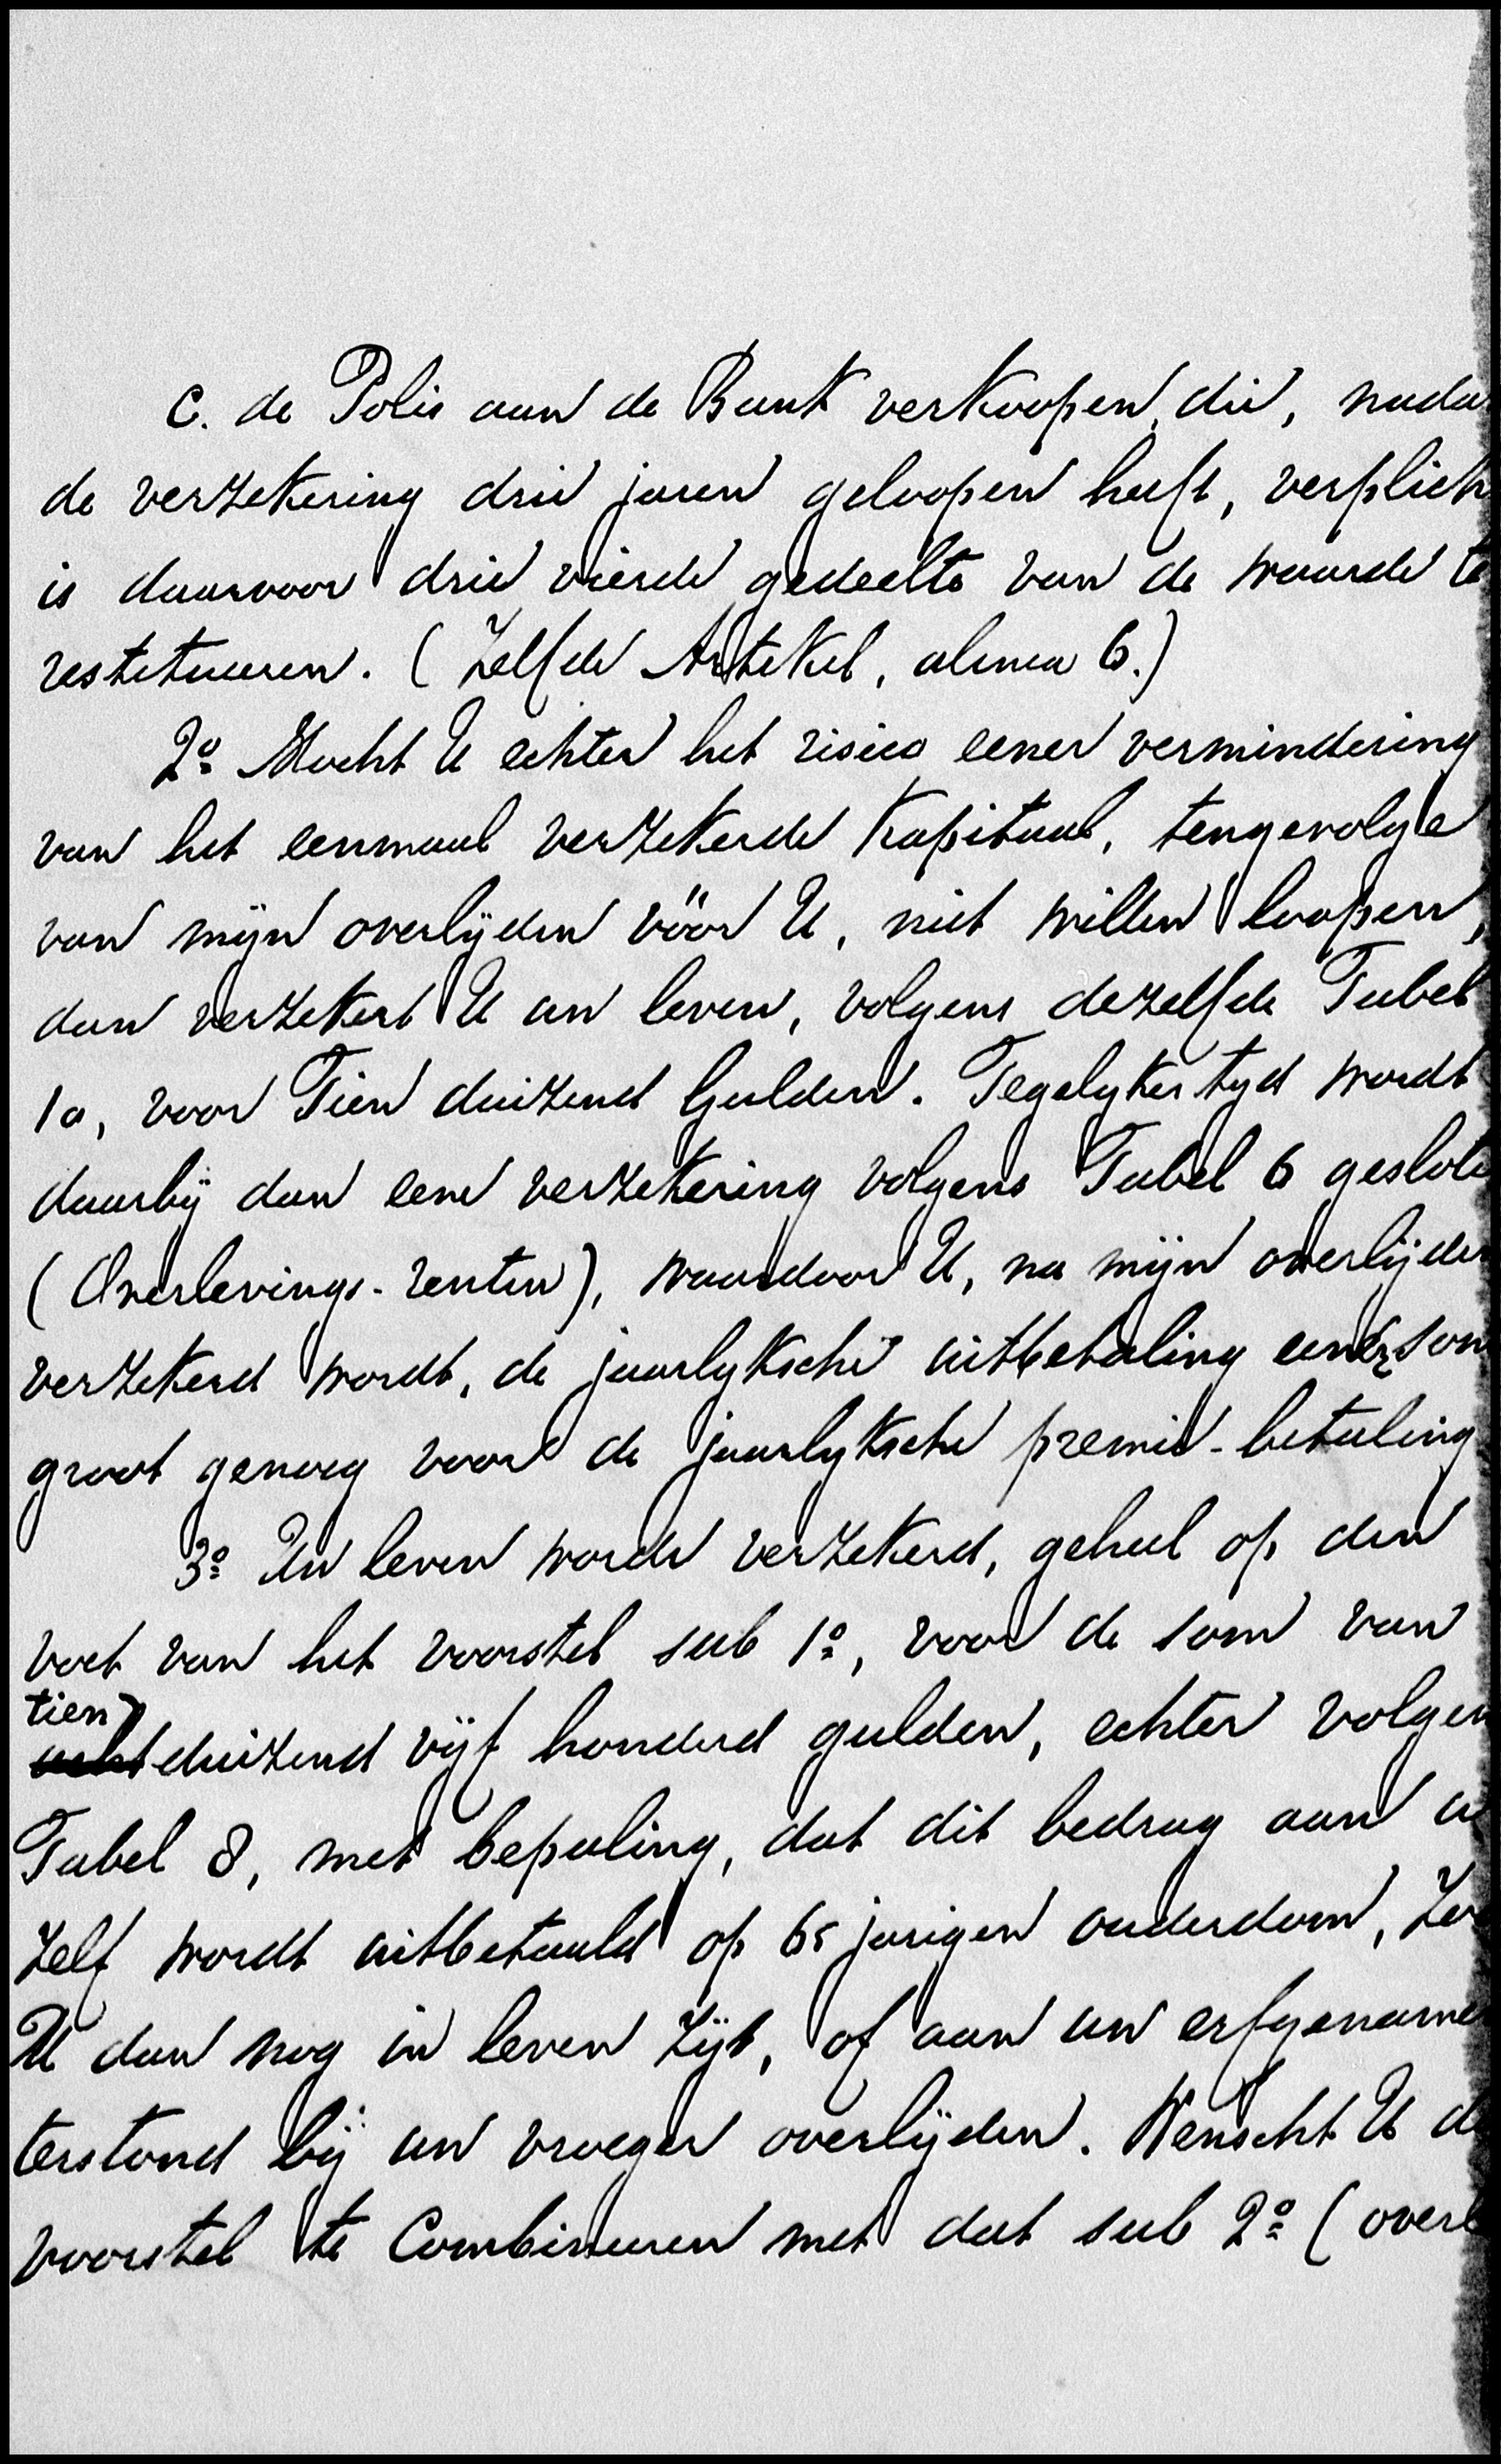 c. de Polis aan de Bank verkoopen, die, nada
de verzekering drie jaren geloopen heeft, verplich
is daarvoor drie vierde gedeelte van de waarde te
restitueeren. (Zelfde Artikel, alinea 6.)
2º Mocht U echter het risico eener vermindering
van het eenmaal verzekerde Kapitaal, tengevolge
van mijn overlijden vóór U, niet willen loopen,
dan verzekert U uw leven, volgens dezelfde Tabel
1a, voor Tien duizend Gulden. Tegelykertyd wordt
daarbij dan eene verzekering volgens Tabel 6 geslote
(Overlevings-renten), waardoor U, na mijn overlijden
verzekerd wordt, de jaarlyksche uitbetaling eener som
groot genoeg voor de jaarlyksche premie-betaling
3º Uw leven worde verzekerd, geheel op den
voet van het voorstel sub 1º, voor de som van
tien
acht duizend vijf honderd gulden, echter volgen
Tabel 8, met bepaling, dat dit bedrag aan u
zelf wordt uitbetaald op 65 jarigen ouderdom, zoo
U dan nog in leven zijt, of aan uw erfgename
terstond bij uw vroeger overlijden. Wenscht U d
voorstel te Combineeren met dat sub 2º (overl